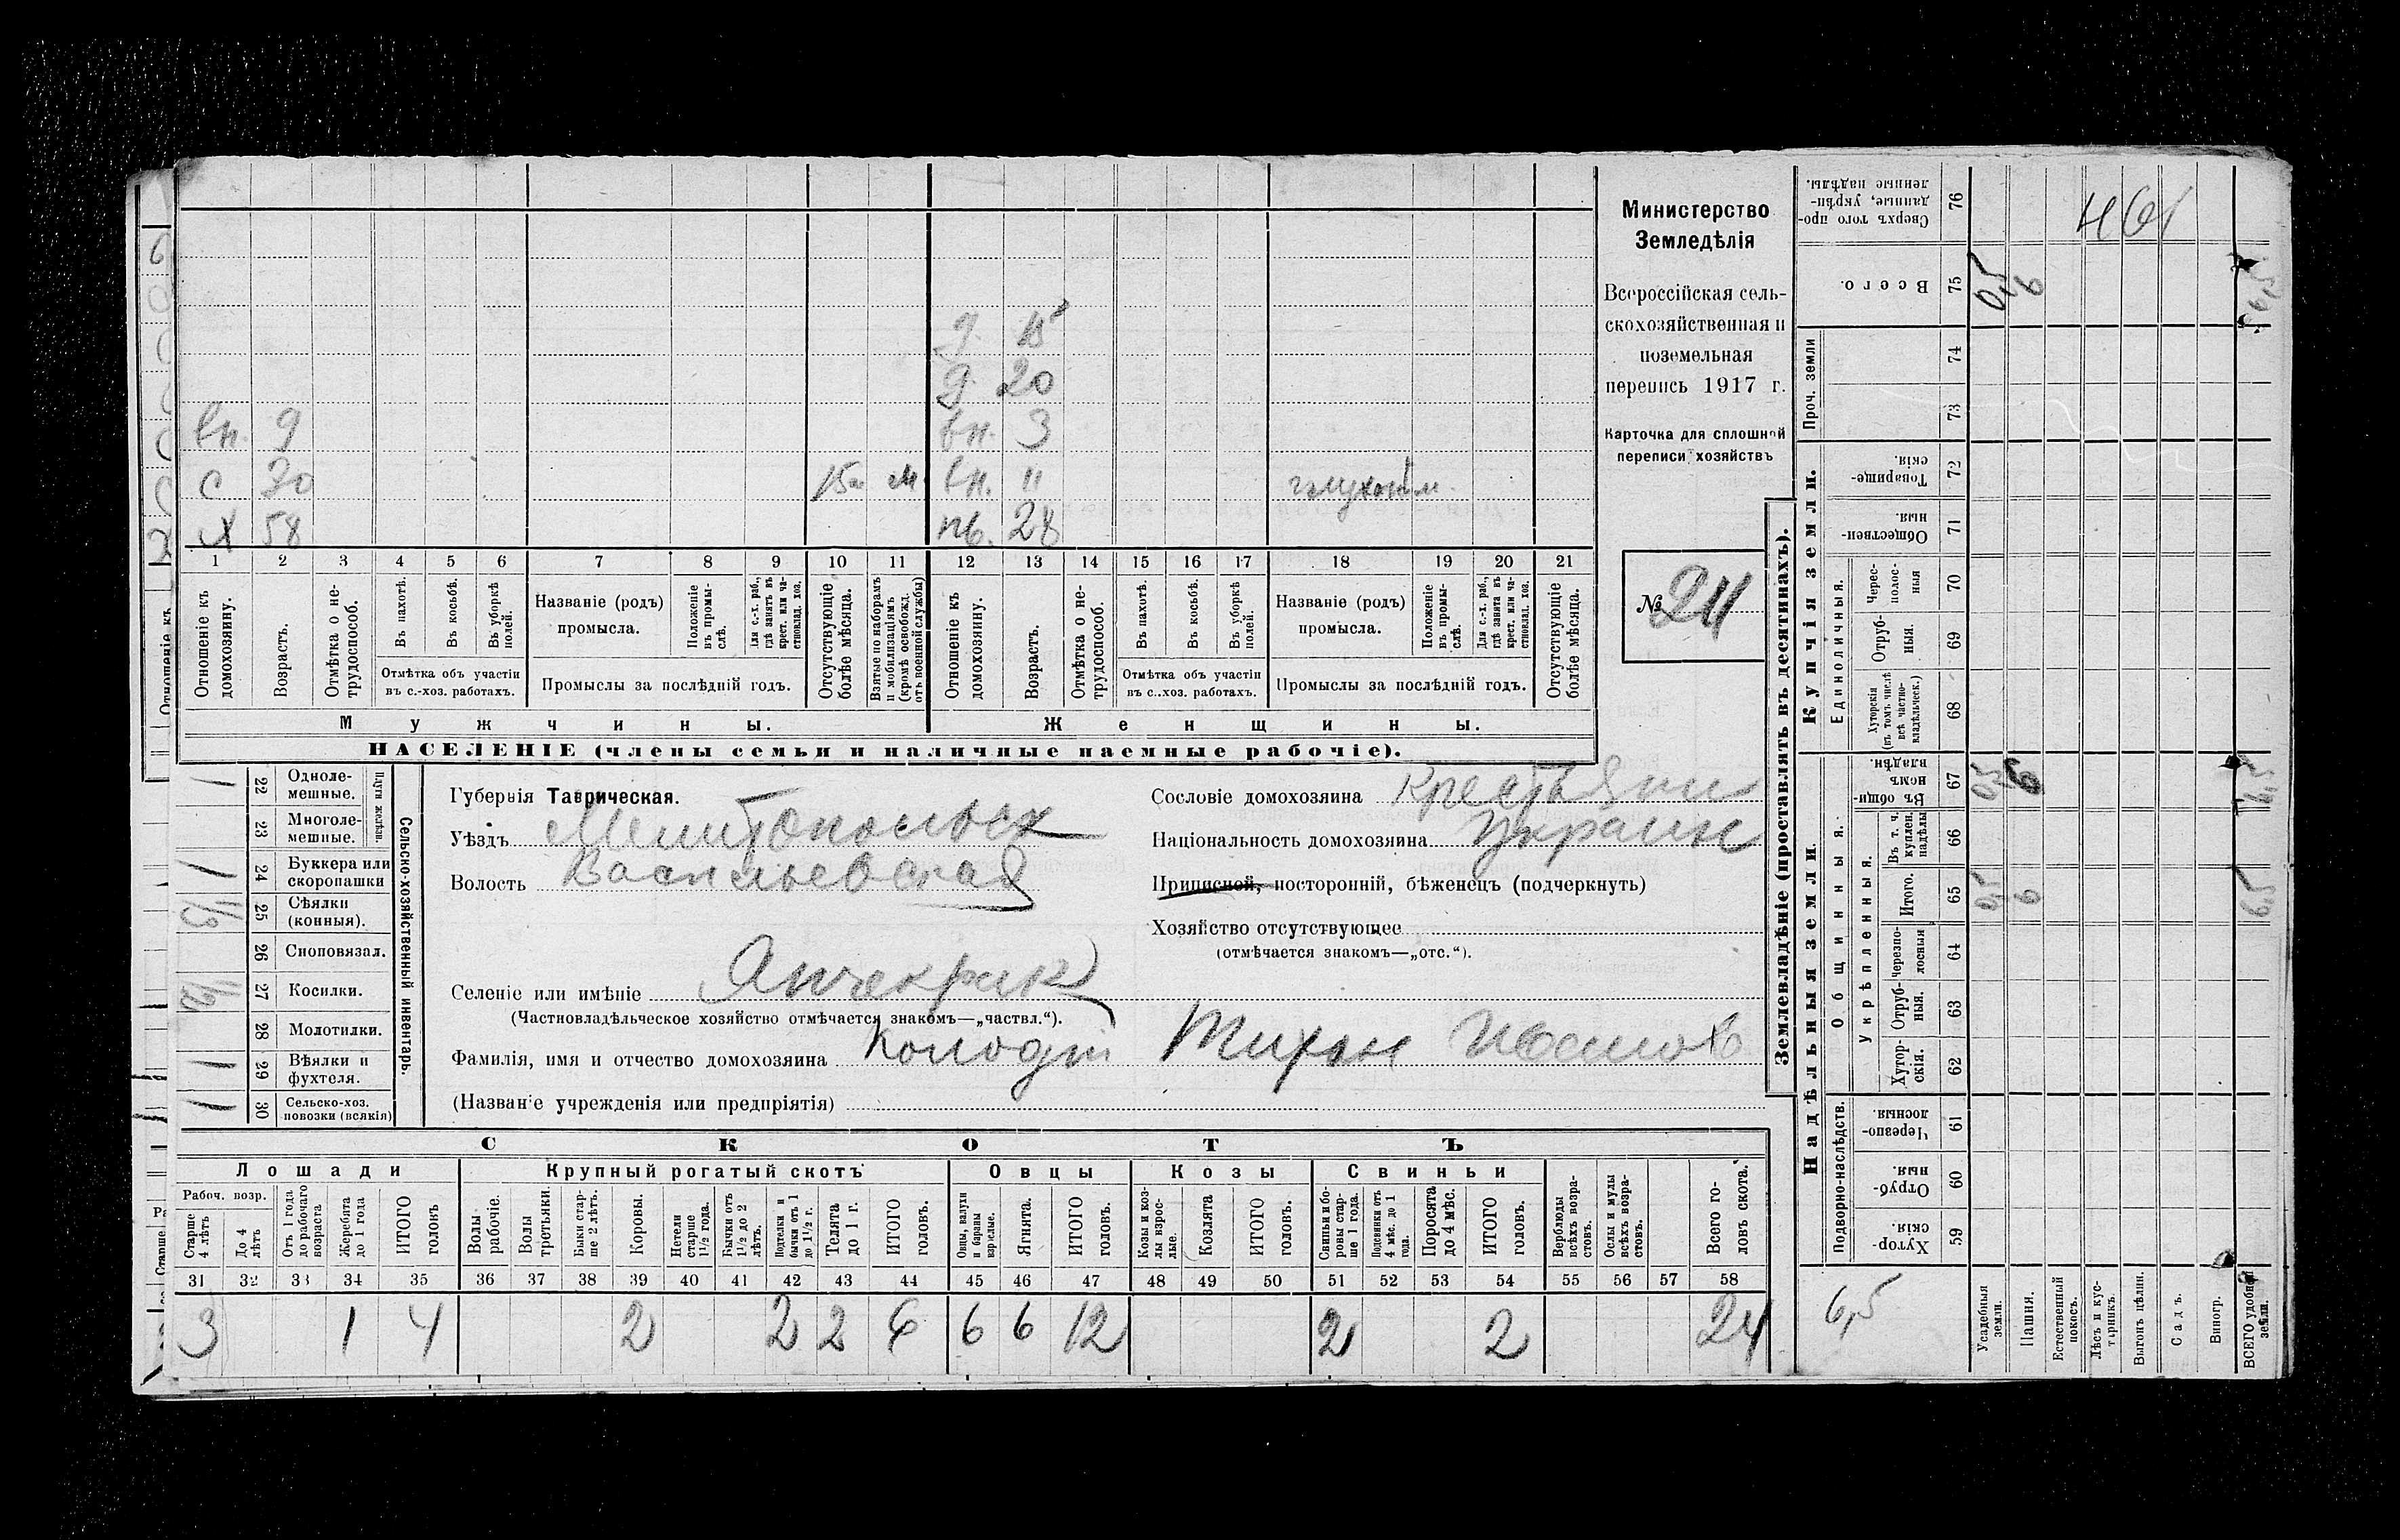 Министерство
Земледѣлія
Всероссійская сель-
скохозяйственная и
поземельная
перепись 1917 г.
Карточка для сплошной
переписи хозяйствъ
№ 211
д. 15
д. 20
вн. 9 вн. 3
с 30 м. вн. "
х 58 нв. 28
1 2 3 4 5 6 7 8 9 10 11 12 13 14 15 16 17 18 19 20 21
Отношеніе къ домохозяину.
Возрастъ.
Отмѣтка о не-трудоспособ.
Въ пахотѣ.
Въ косьбѣ.
Въ уборкѣ полей.
Отмѣтка объ участіи
въ с.-хоз. работахъ.
Названіе (родъ)
промысла.
Положеніе въ промы-слѣ.
Для с.-х. раб., гдѣ занятъ въ крест. или ча-стновлад. хоз.
Промыслы за послѣдній годъ.
Отсутствующіе болѣе мѣсяца.
Взятые по наборамъ и мобилизаціямъ (кромѣ освобожд. отъ военной службы)
Отношеніе къ домохозяину.
Возрастъ.
Отмѣтка о не-трудоспособ.
Въ пахотѣ.
Въ косьбѣ.
Въ уборкѣ полей.
Отмѣтка объ участіи
въ с.-хоз. работахъ.
Названіе (родъ)
промысла.
Положеніе въ промы-слѣ.
Для с.-х. раб., гдѣ занята въ крест. или ча-стновлад. хоз.
Промыслы за послѣдній годъ.
Отсутствующіе болѣе мѣсяца.
Мужчины. Женщины.
НАСЕЛЕНІЕ (члены семьи и наличные наемные рабочіе).
Сельско-хозяйственный инвентарь.
Плуги желѣзн.
22 Одноле-мешные. 1
23 Многоле-мешные.
24 Буккера или скоропашки 1
25 Сѣялки (конныя).
26 Сноповязал.
27 Косилки.
28 Молотилки.
29 Вѣялки и фухтеля. 1
30 Сельско-хоз. повозки (всякія) 1
Губернія Таврическая.
Уѣздъ Мелитопольск
Волость Васильевская
Селеніе или имѣніе Янчекрак
(Частновладѣльческое хозяйство отмѣчается знакомъ—„частвл.“).
Фамилія, имя и отчество домохозяина Колодій Мирон Иванов
(Названіе учрежденія или предпріятія)
Сословіе домохозяина Крестьянин
Національность домохозяина Украин
Приписной, посторонній, бѣженецъ (подчеркнуть)
Хозяйство отсутствующее
(отмѣчается знакомъ—„отс.“).
СКОТЪ
Лошади Крупный рогатый скотъ Овцы Козы Свиньи
Рабоч. возр.
Старше 4 лѣтъ
До 4 лѣтъ
Отъ 1 года до рабочаго возраста
Жеребята до 1 года
ИТОГО головъ
Волы рабочіе.
Волы третьяки.
Быки стар-ше 2 лѣтъ.
Коровы.
Нетели старше 1½ года.
Бычки отъ 1½ до 2 лѣтъ.
Подтелки и бычки отъ 1 до 1½ г.
Телята до 1 г.
ИТОГО головъ.
Овцы, валухи и бараны взрослые.
Ягнята.
ИТОГО головъ.
Козы и коз-лы взрос-лые.
Козлята
ИТОГО головъ.
Свиньи и бо-ровы стар-ше 1 года.
Подсвинки отъ 4 мѣс. до 1 года.
Поросята до 4 мѣс.
ИТОГО головъ.
Верблюды всѣхъ возра-стовъ.
Ослы и мулы всѣхъ возра-стовъ.
Всего го-ловъ скота.
31 32 33 34 35 36 37 38 39 40 41 42 43 44 45 46 47 48 49 50 51 52 53 54 55 56 57 58
3 1 4 2 2 2 6 6 6 12 2 2 24
Землевладѣніе (проставлять въ десятинахъ).
Надѣльныя земли.
Купчія земли.
Проч. земли
Подворно-наслѣдств.
Общинныя.
Укрѣпленныя.
Единоличныя.
Сверхъ того про-данные, укрѣп-ленные надѣлы. 76
Всего. 75 0,5 6 6,5
74
73
Товарище-скія. 72
Обществен-ныя. 71
Черес-полос-ныя 70
Отруб-ныя. 69
Хуторскія (въ томъ числѣ всѣ частно-владѣльческ.) 68
Въ общи-номъ владѣн. 67 0,5 6 6,5
Въ т. ч. куплен. надѣлы 66
Итого. 65 0,5 6 6,5
Черезпо-лосныя 64
Отруб-ныя. 63
Хутор-скія. 62
Черезпо-лосныя 61
Отруб-ныя. 60
Хутор-скія. 59
6,5
Усадебныя земли.
Пашня.
Естественный покосъ.
Лѣсъ и кус-тарникъ.
Выгонъ цѣлин.
Садъ.
Виногр.
ВСЕГО удобной земли.